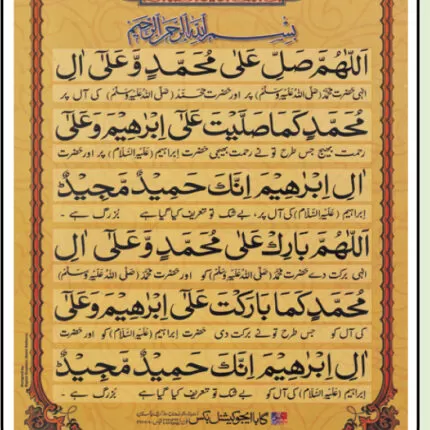 بِسْمِ اللهِ الرَّحْمٰنِ الرَّحِيْمِ
اَللّٰهُمَّ صَلِّ عَلٰى مُحَمَّدٍ وَّعَلٰٓى اٰلِ
الٰہی حضرت محمدؐ (صلی اللہ علیہ وسلم) پر اور حضرت محمد (صلی اللہ علیہ وسلم) کی آل پر
مُحَمَّدٍ كَمَا صَلَّيْتَ عَلٰٓى اِبْرٰهِيْمَ وَعَلٰٓى
رحمت بھیج جس طرح تو نے رحمت بھیجی حضرت ابراہیم (علیہ السلام) پر اور حضرت
اٰلِ اِبْرٰهِيْمَ اِنَّكَ حَمِيْدٌ مَّجِيْدٌ
ابراہیم (علیہ السلام) کی آل پر، بے شک تو تعریف کیا گیا ہے بزرگ ہے ۔
اَللّٰهُمَّ بَارِكْ عَلٰى مُحَمَّدٍ وَّعَلٰٓى اٰلِ
الٰہی برکت دے حضرت محمدؐ (صلی اللہ علیہ وسلم) کو اور حضرت محمدؐ (صلی اللہ علیہ وسلم)
مُحَمَّدٍ كَمَا بَارَكْتَ عَلٰٓى اِبْرٰهِيْمَ وَعَلٰٓى
کی آل کو جس طرح تو نے برکت دی حضرت ابراہیم (علیہ السلام) کو اور حضرت
اٰلِ اِبْرٰهِيْمَ اِنَّكَ حَمِيْدٌ مَّجِيْدٌ
ابراہیم (علیہ السلام) کی آل کو بے شک تو تعریف کیا گیا ہے بزرگ ہے ۔
گابا ایجوکیشنل بکس